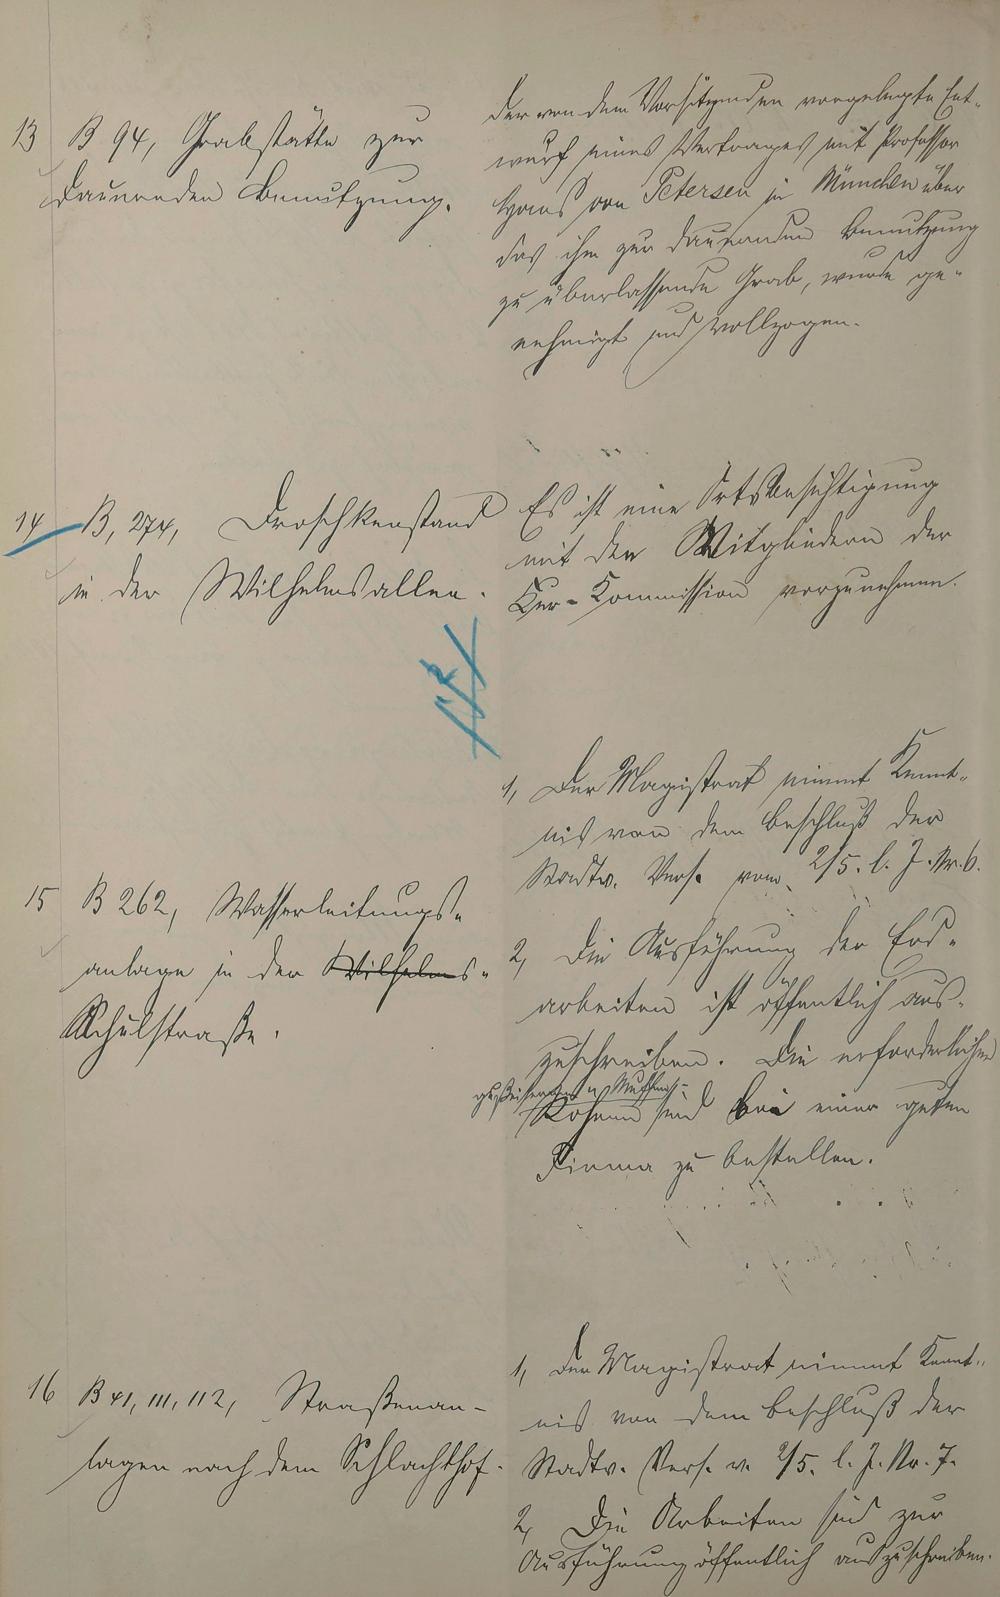 13 B 94, Grabstätte zur
dauernden Benutzung.
der von dem Vorsitzenden vorgelegte Ent-
wurf eines Vertrages mit Professor
Hans von Petersen in München über
das ihm zur dauernden Benutzung
zu überlassende Grab, wurde ge-
nehmigt und vollzogen.
14 B, 274, Droschkenstand
in der Wilhelmsallee.
Es ist eine Ortsbesichtigung
mit den Mitgliedern der
Kur-Kommission vorzunehmen.
15 B 262, Wasserleitungs-
anlage in der Wilhelms-
Schulstraße.
1, Der Magistrat nimmt Kennt-
nis von dem Beschluß der
Stadtv. Vers. vom 2/5. l. J. Nr. 6.
2, Die Ausführung der Erd-
arbeiten ist öffentlich aus-
zuschreiben. Die erforderlichen
gußeisernen Muffen-
Rohre sind bei einer guten
Firma zu bestellen.
16 B 41, 111, 112, Straßenan-
lagen nach dem Schlachthof.
1, Der Magistrat nimmt Kennt-
nis von dem Beschluß der
Stadtv. Vers. v. 2/5. l. J. Nr. 7.
2, Die Arbeiten sind zur
Ausführung öffentlich auszuschreiben.